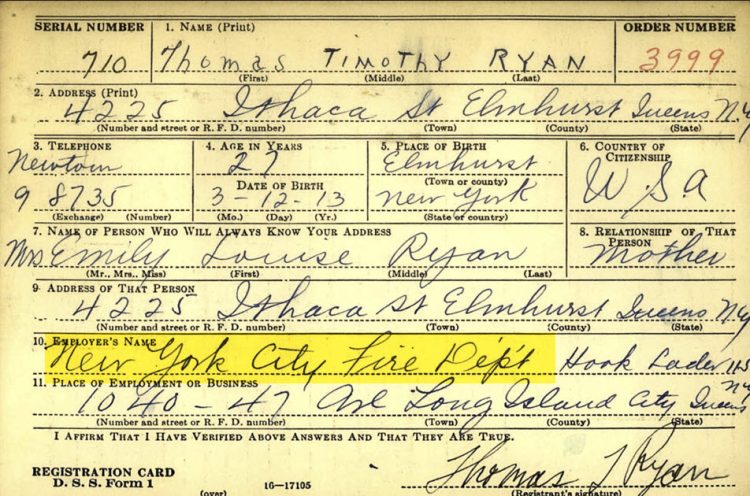 SERIAL NUMBER 1. NAME (Print) ORDER NUMBER
710 Thomas TIMOTHY RYAN 3999
(First) (Middle) (Last)
2. ADDRESS (Print)
4225 Ithaca St Elmhurst Queens N.Y
(Number and street or R. F. D. number) (Town) (County) (State)
3. TELEPHONE 4. AGE IN YEARS 5. PLACE OF BIRTH 6. COUNTRY OF CITIZENSHIP
Newtown 27 Elmhurst
(Town or county)
9 8735 DATE OF BIRTH New York U S A
3-12-13
(Exchange) (Number) (Mo.) (Day) (Yr.) (State or country)
7. NAME OF PERSON WHO WILL ALWAYS KNOW YOUR ADDRESS 8. RELATIONSHIP OF THAT PERSON
Mrs Emily Louise Ryan Mother
(Mr., Mrs., Miss) (First) (Middle) (Last)
9. ADDRESS OF THAT PERSON
4225 Ithaca St Elmhurst Queens N.Y
(Number and street or R. F. D. number) (Town) (County) (State)
10. EMPLOYER'S NAME
New York City Fire Dep't Hook Lader
11. PLACE OF EMPLOYMENT OR BUSINESS
10 40 - 47 Ave Long Island City Queens N.Y
(Number and street or R. F. D. number) (Town) (County) (State)
I AFFIRM THAT I HAVE VERIFIED ABOVE ANSWERS AND THAT THEY ARE TRUE.
REGISTRATION CARD
D. S. S. Form 1 (over) 16-17105
Thomas T Ryan
(Registrant's signature)